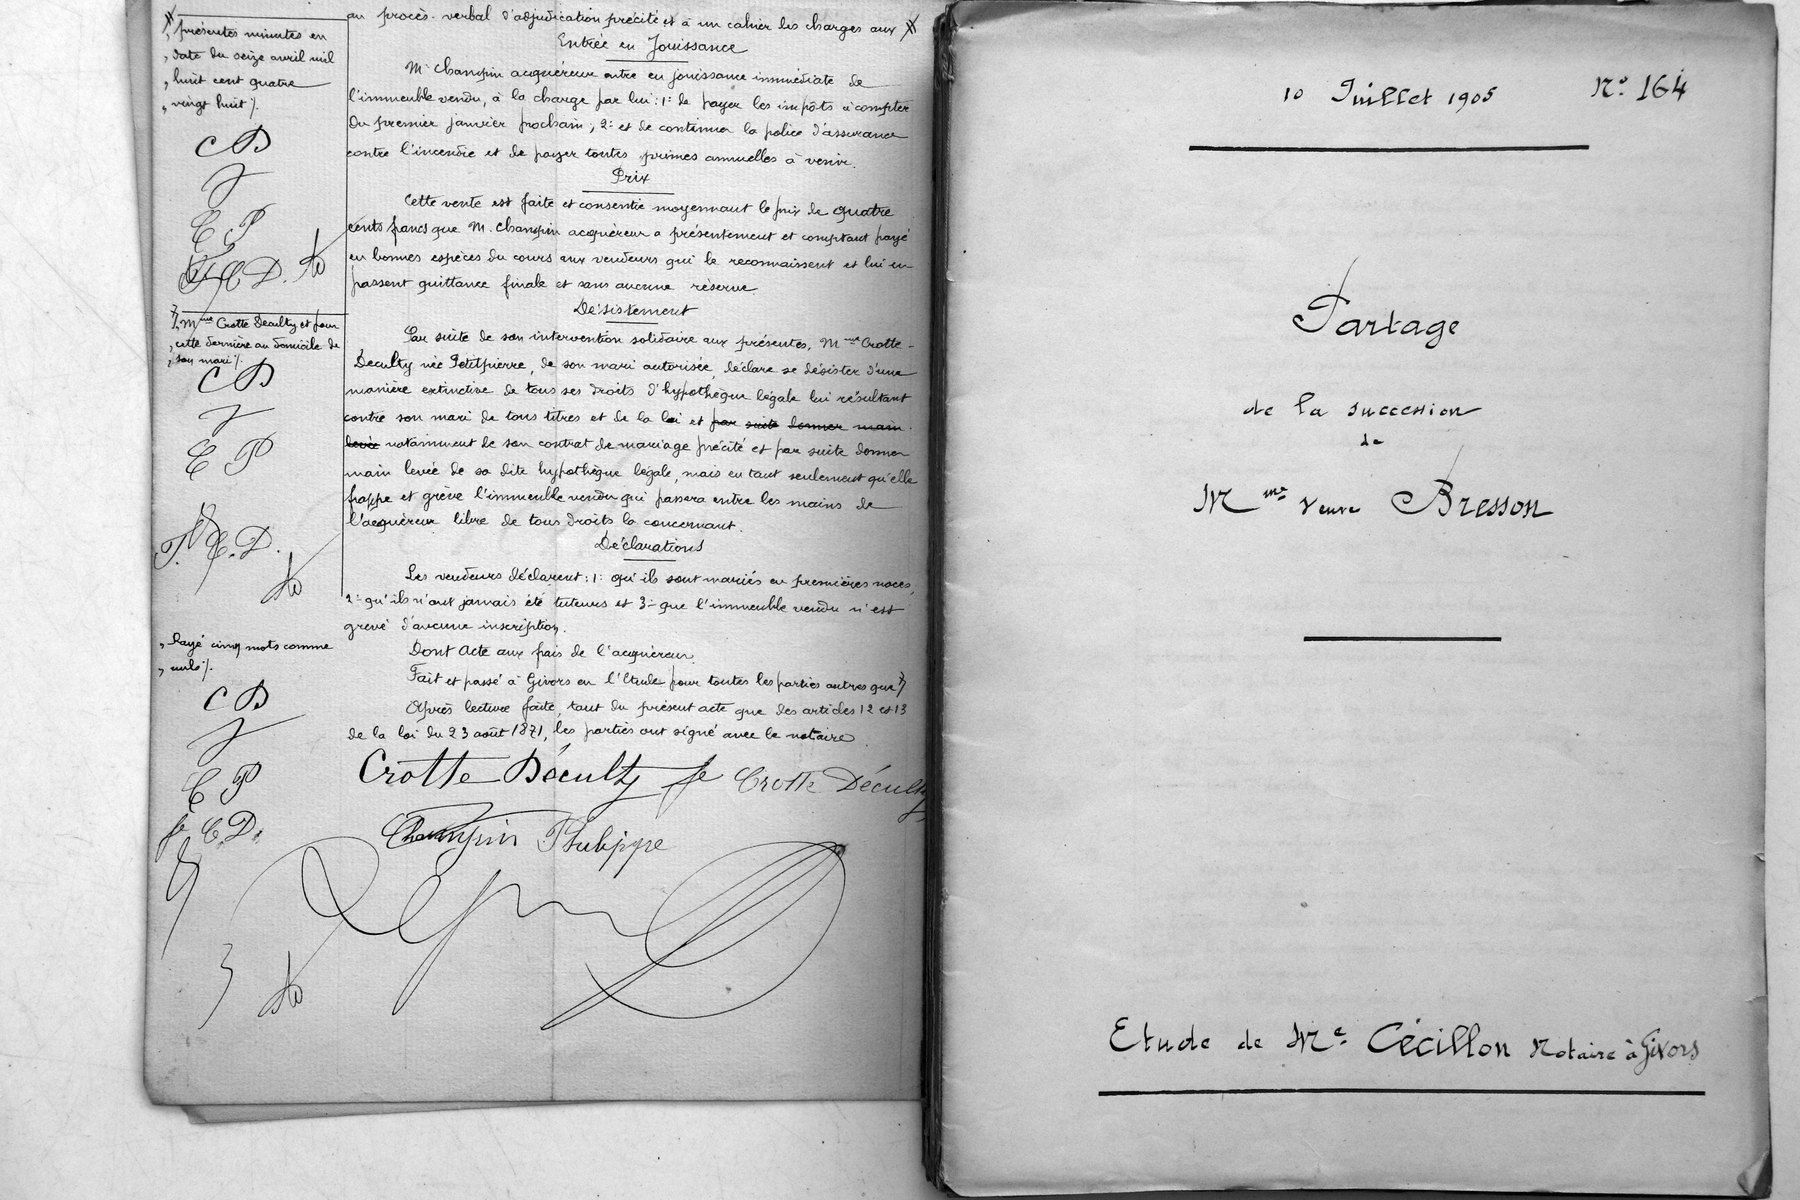 au procès-verbal d'adjudication précité et à un cahier des charges aux
Entrée en Jouissance
M. Champin acquéreur entre en jouissance immédiate de
l'immeuble vendu, à la charge par lui: 1: de payer les impôts à compter
du premier janvier prochain; 2: et de continuer la police d'assurance
contre l'incendie et de payer toutes primes annuelles à venir.
Prix
Cette vente est faite et consentie moyennant le prix de quatre
cents francs que M. Champin acquéreur a présentement et comptant payé
en bonnes espèces du cours aux vendeurs qui le reconnaissent et lui en
passent quittance finale et sans aucune réserve
Désistement
Par suite de son intervention solidaire aux présentes, Mme Crotte-
Déculty née Petitpierre, de son mari autorisée, déclare se désister d'une
manière extinctive de tous ses droits d'hypothèque légale lui résultant
contre son mari de tous titres et de la loi et par suite donner main
levée notamment de son contrat de mariage précité et par suite donner
main levée de sa dite hypothèque légale, mais en tant seulement qu'elle
frappe et grève l'immeuble vendu qui passera entre les mains de
l'acquéreur libre de tous droits la concernant.
Déclarations
Les vendeurs déclarent: 1: qu'ils sont mariés en premières noces,
2- qu'ils n'ont jamais été tuteurs et 3- que l'immeuble vendu n'est
grevé d'aucune inscription.
Dont Acte aux frais de l'acquéreur
Fait et passé à Givors en l'Etude pour toutes les parties autres que
Après lecture faite, tant du présent acte que des articles 12 et 13
de la loi du 23 août 1871, les parties ont signé avec le notaire
Crotte Déculty fe Crotte Déculty
Champin Philippe
présentes minutes en
date du seize avril mil
huit cent quatre
vingt huit /.
CD
C P
F. C D.
Mme Crotte Déculty et pour
cette dernière au domicile de
son mari /.
CD
C P
F. C. D.
Rayé cinq mots comme
nuls /.
CD
C P
f. C. D.
10 Juillet 1905
No. 164
Partage
de la succession
de
Mme Veuve Bresson
Etude de Me. Cécillon Notaire à Givors